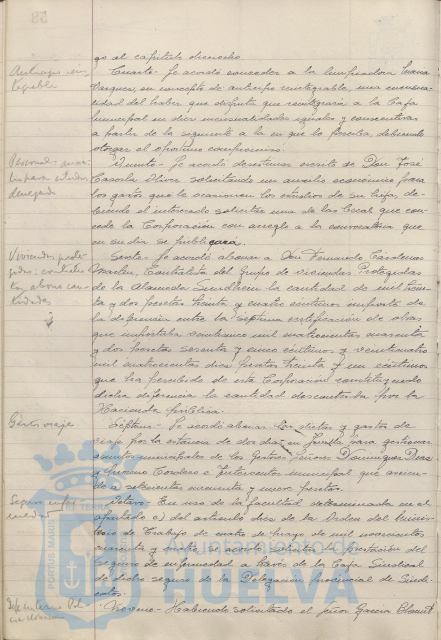 go al capítulo dieciocho
Anticipo rein-
tegrable
Cuarto.- Se acordó conceder a la limpiadora Juana
Vazquez, en concepto de anticipo reintegrable, una mensua-
lidad del haber que disfruta que reintegrará a la Caja
municipal en diez mensualidades iguales y consecutivas
a partir de la siguiente a la en que lo perciba, debiendo
otorgar el oportuno compromiso.
Personal:
para estudios,
denegada
Quinto.- Se acordó desestimar escrito de Don José
Casado Olivo solicitando un auxilio económico para
los gastos que le ocasionan los estudios de su hija, de-
biendo el interesado solicitar una de las becas que con-
cede la Corporación con arreglo a la convocatoria que
en su día se publicara.
Viviendas prote-
gidas: contratis-
ta, abono can-
tidades
Sexto.- Se acordó abonar a Don Fernando Cárdenas
Martín, Contratista del Grupo de viviendas Protegidas
de la Alameda Sundheim la cantidad de mil trein-
ta y dos pesetas treinta y cuatro céntimos importe de
la diferencia entre la séptima certificación de obras
que importaba veinticinco mil cuatrocientas cuarenta
y dos pesetas sesenta y cinco céntimos y veinticuatro
mil cuatrocientas diez pesetas treinta y un céntimos
que ha percibido de esta Corporación constituyendo
dicha diferencia la cantidad descontada por la
Hacienda pública.
Gastos viaje
Séptimo.- Se acordó abonar las dietas y gastos de
viaje por la estancia de dos días en Sevilla para gestionar
asuntos municipales de los Gestores Señores Domínguez Roqa
y Moreno Cordero e Interventor municipal que ascien-
de a setecientas cincuenta y nueve pesetas.
Seguro enfer-
medad
Octavo.- En uso de la facultad determinada en el
apartado c) del artículo diez de la Orden del Minis-
terio de Trabajo de cuatro de mayo de mil novecientos
cuarenta y cuatro se acordó solicitar la prestación del
seguro de enfermedad a través de la Caja Sindical
de dicho seguro de la Delegación provincial de Sindi-
catos.
Noveno.- Habiendo solicitado el señor García
Ayuntamiento de
HUELVA
PORTUS MARIS